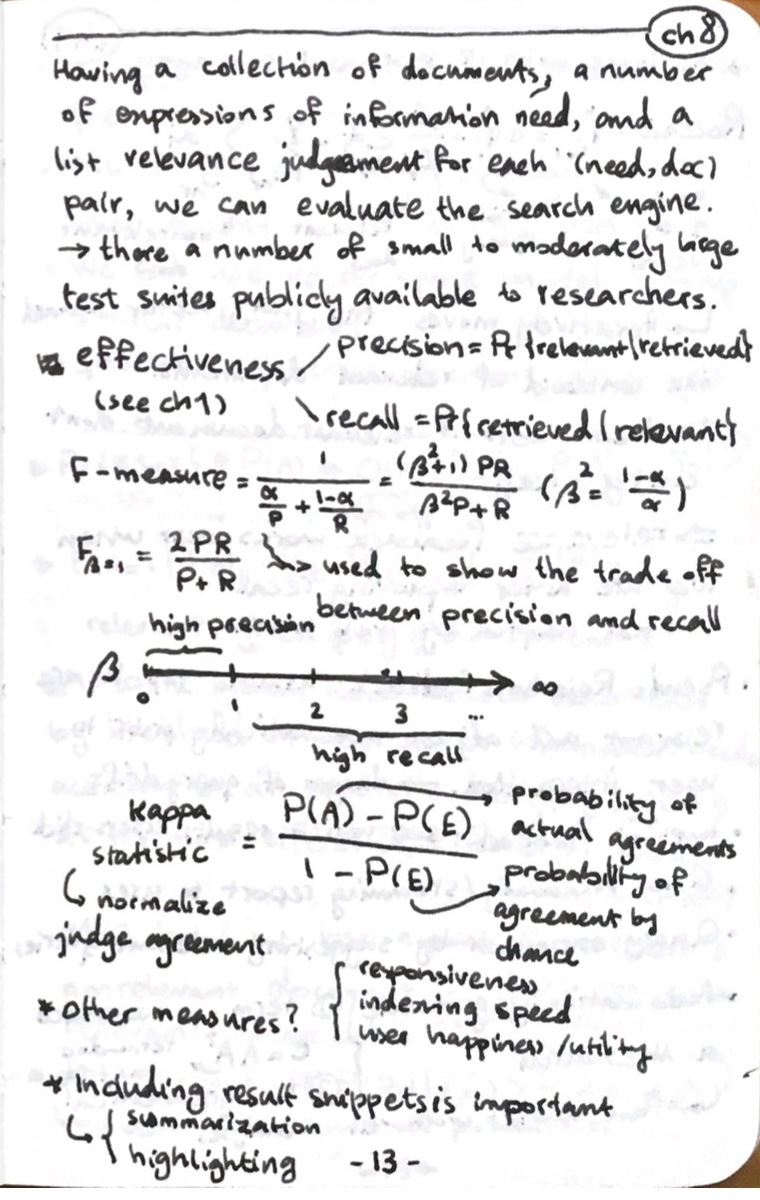 ch 8
Having a collection of documents, a number
of expressions of information need, and a
list relevance judgement for each (need, doc)
pair, we can evaluate the search engine.
→ there a number of small to moderately large
test suites publicly available to researchers.
* effectiveness
(see ch 1)
precision = Pr {relevant | retrieved}
recall = Pr {retrieved | relevant}
F-measure = 1 / (α/P + (1-α)/R) = (β²+1) PR / (β²P + R) (β² = (1-α)/α)
F β=1 = 2PR / (P+R) → used to show the trade off
between precision and recall
high precision
β 0 1 2 3 ... ∞
high recall
Kappa
statistic = (P(A) - P(E)) / (1 - P(E))
→ probability of
actual agreements
→ probability of
agreement by
chance
↳ normalize
judge agreement
* Other measures? { responsiveness
indexing speed
user happiness / utility
* Including result snippets is important
↳ { summarization
highlighting
- 13 -